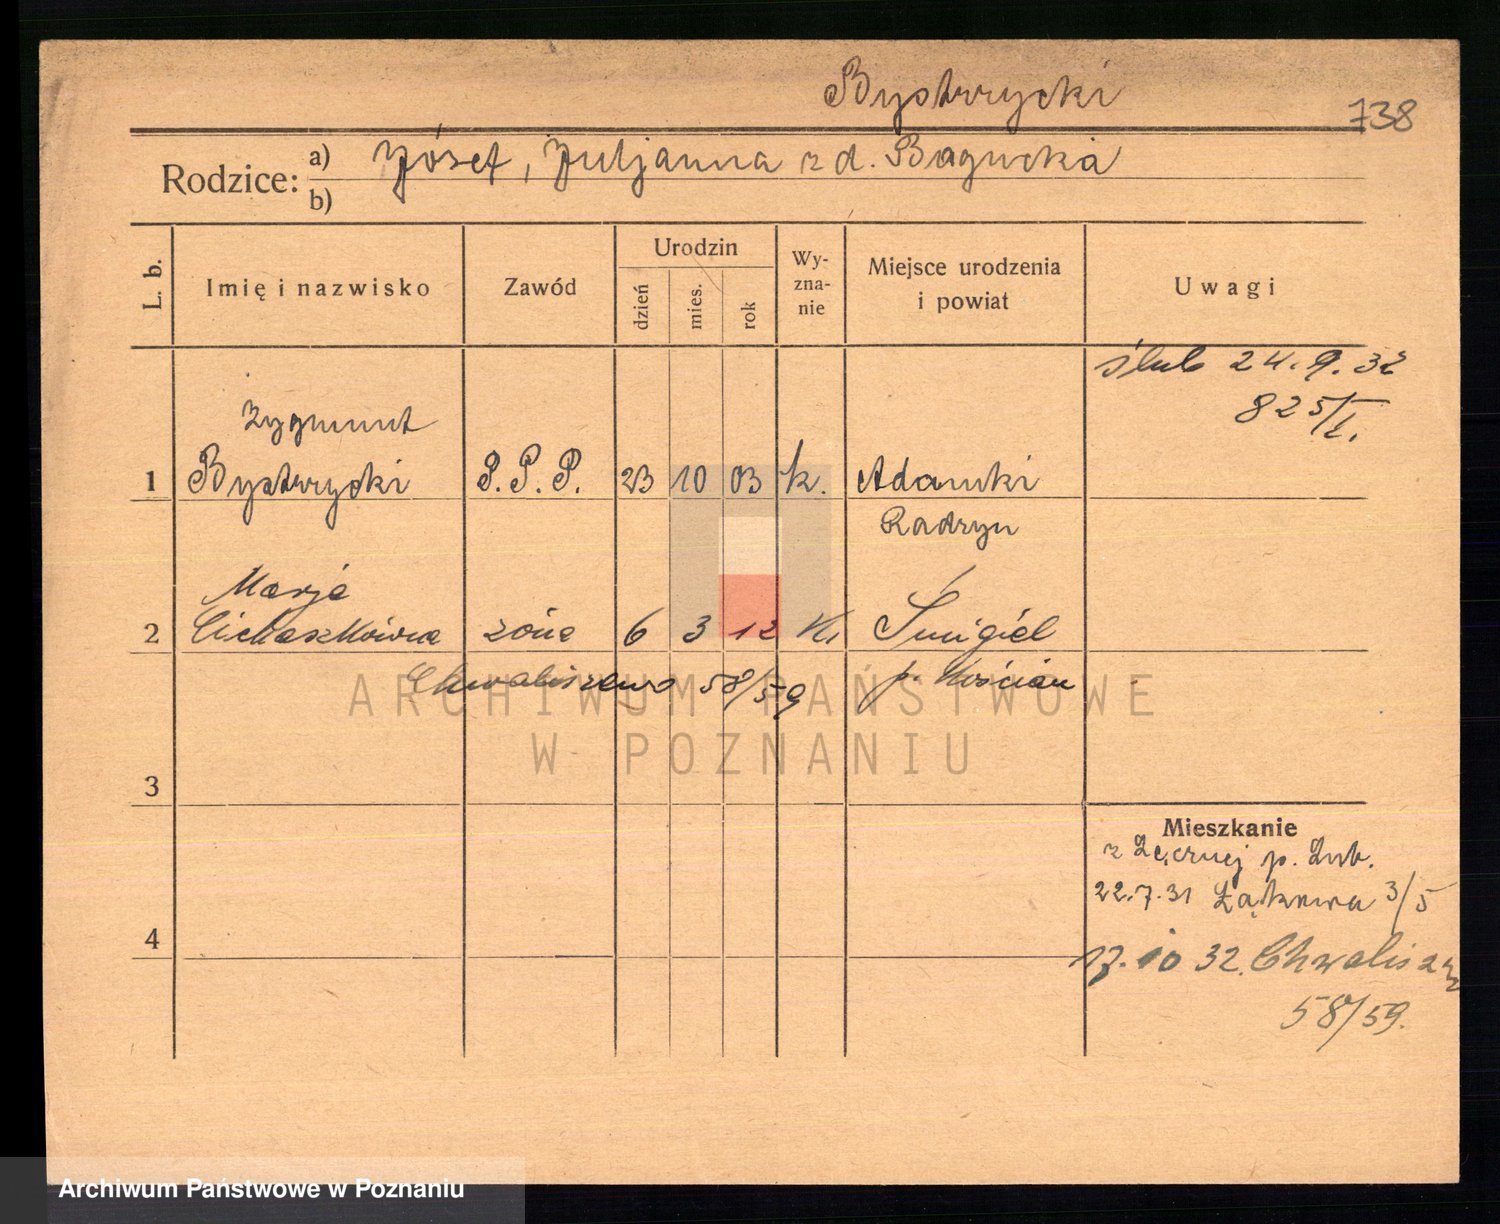 Bystrzycki
738
Rodzice: a) Józef, Juljanna z d. Bogucka
b)
L. b.
Imię i nazwisko
Zawód
Urodzin
dzień
mies.
rok
Wy-
zna-
nie
Miejsce urodzenia
i powiat
Uwagi
ślub 24.9.32
825/I.
Zygmunt
1 Bystrzycki P.P.P. 23 10 03 k. Adamki
Radzyn
Marja
2 Cichaszkówna żona 6 3 12 k. Śmigiel
Chwaliszewo 58/59 p. Kościan
ARCHIWUM PAŃSTWOWE
W POZNANIU
3
Mieszkanie
z p. Lub.
22.7.31 Łąkowa 3/5
4
17.10 32. Chwalisz
58/59.
Archiwum Państwowe w Poznaniu